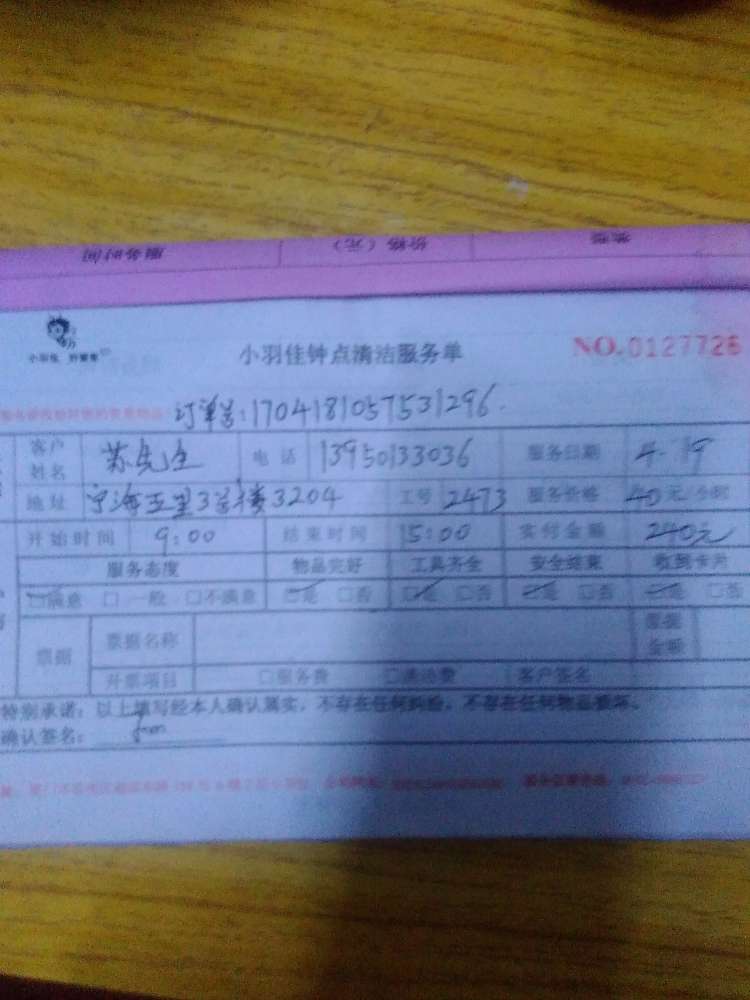 服务时间 价格（元） 类型
小羽佳钟点清洁服务单 NO.0127726
小羽佳
订单号:1704181057531296
客户姓名 苏先生 电话 13950133036 服务日期 4.19
地址 宁海五里3号楼3204 工号 2473 服务价格 40元/小时
开始时间 9:00 结束时间 15:00 实付金额 240元
服务态度 物品完好 工具齐全 安全结束 收到卡片
□满意 □一般 □不满意 □是 □否 □是 □否 □是 □否 □是 □否
票据 票据名称 票据金额
开票项目 □服务费 □清洁费 客户签名
特别承诺：以上填写经本人确认属实，不存在任何纠纷，不存在任何物品损坏。
确认签名：